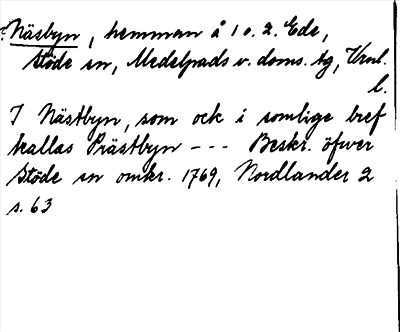 ?Näsbyn, hemman å 1 o. 2. Ede,
Stöde sn, Medelpads v. doms. tg, Vnl.
l.
I Nästbyn, som ock i somlige bref
kallas Prästbyn --- Beskr. öfver
Stöde sn omkr. 1769, Nordlander 2
s. 63